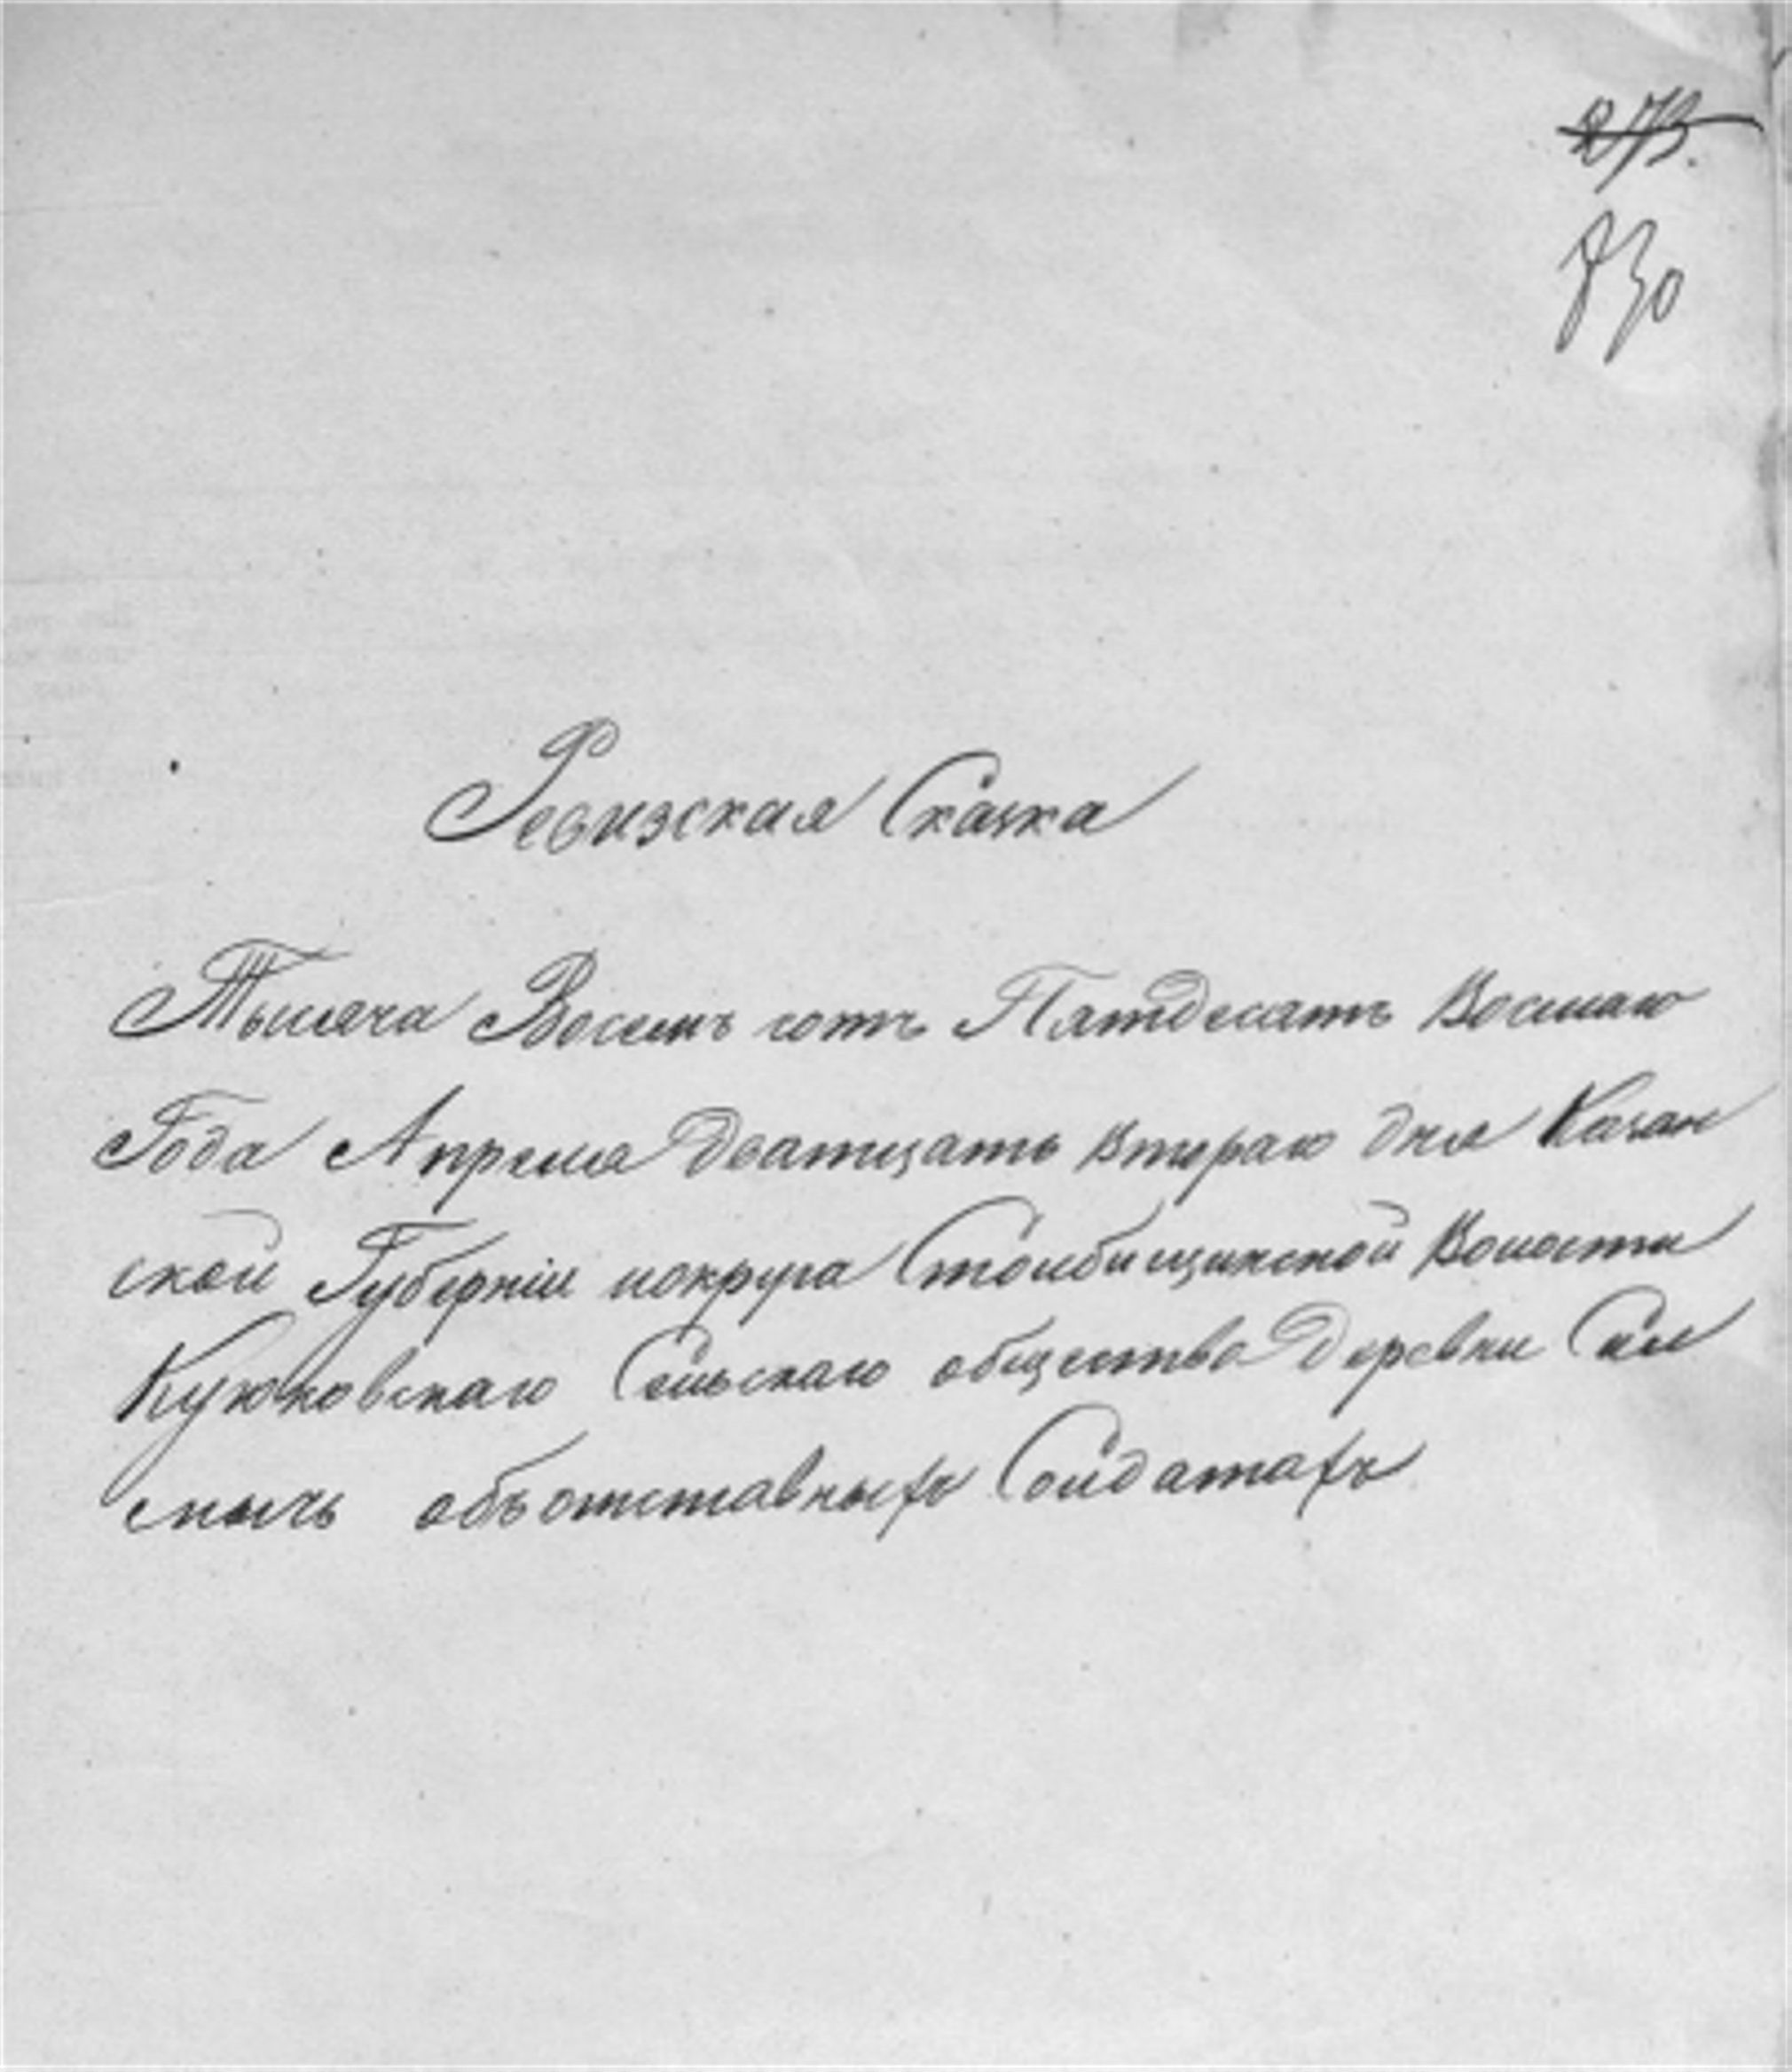 273.
830
Ревизская Сказка
Тысяча Восемь сотъ Пятдесятъ Восмаго
Года Апреля дватцать втораго дня Казан
ской Губерніи иокруга Столбищинской Волости
Куюковскаго Сельскаго общества Деревни
объотставныхъ Солдатахъ